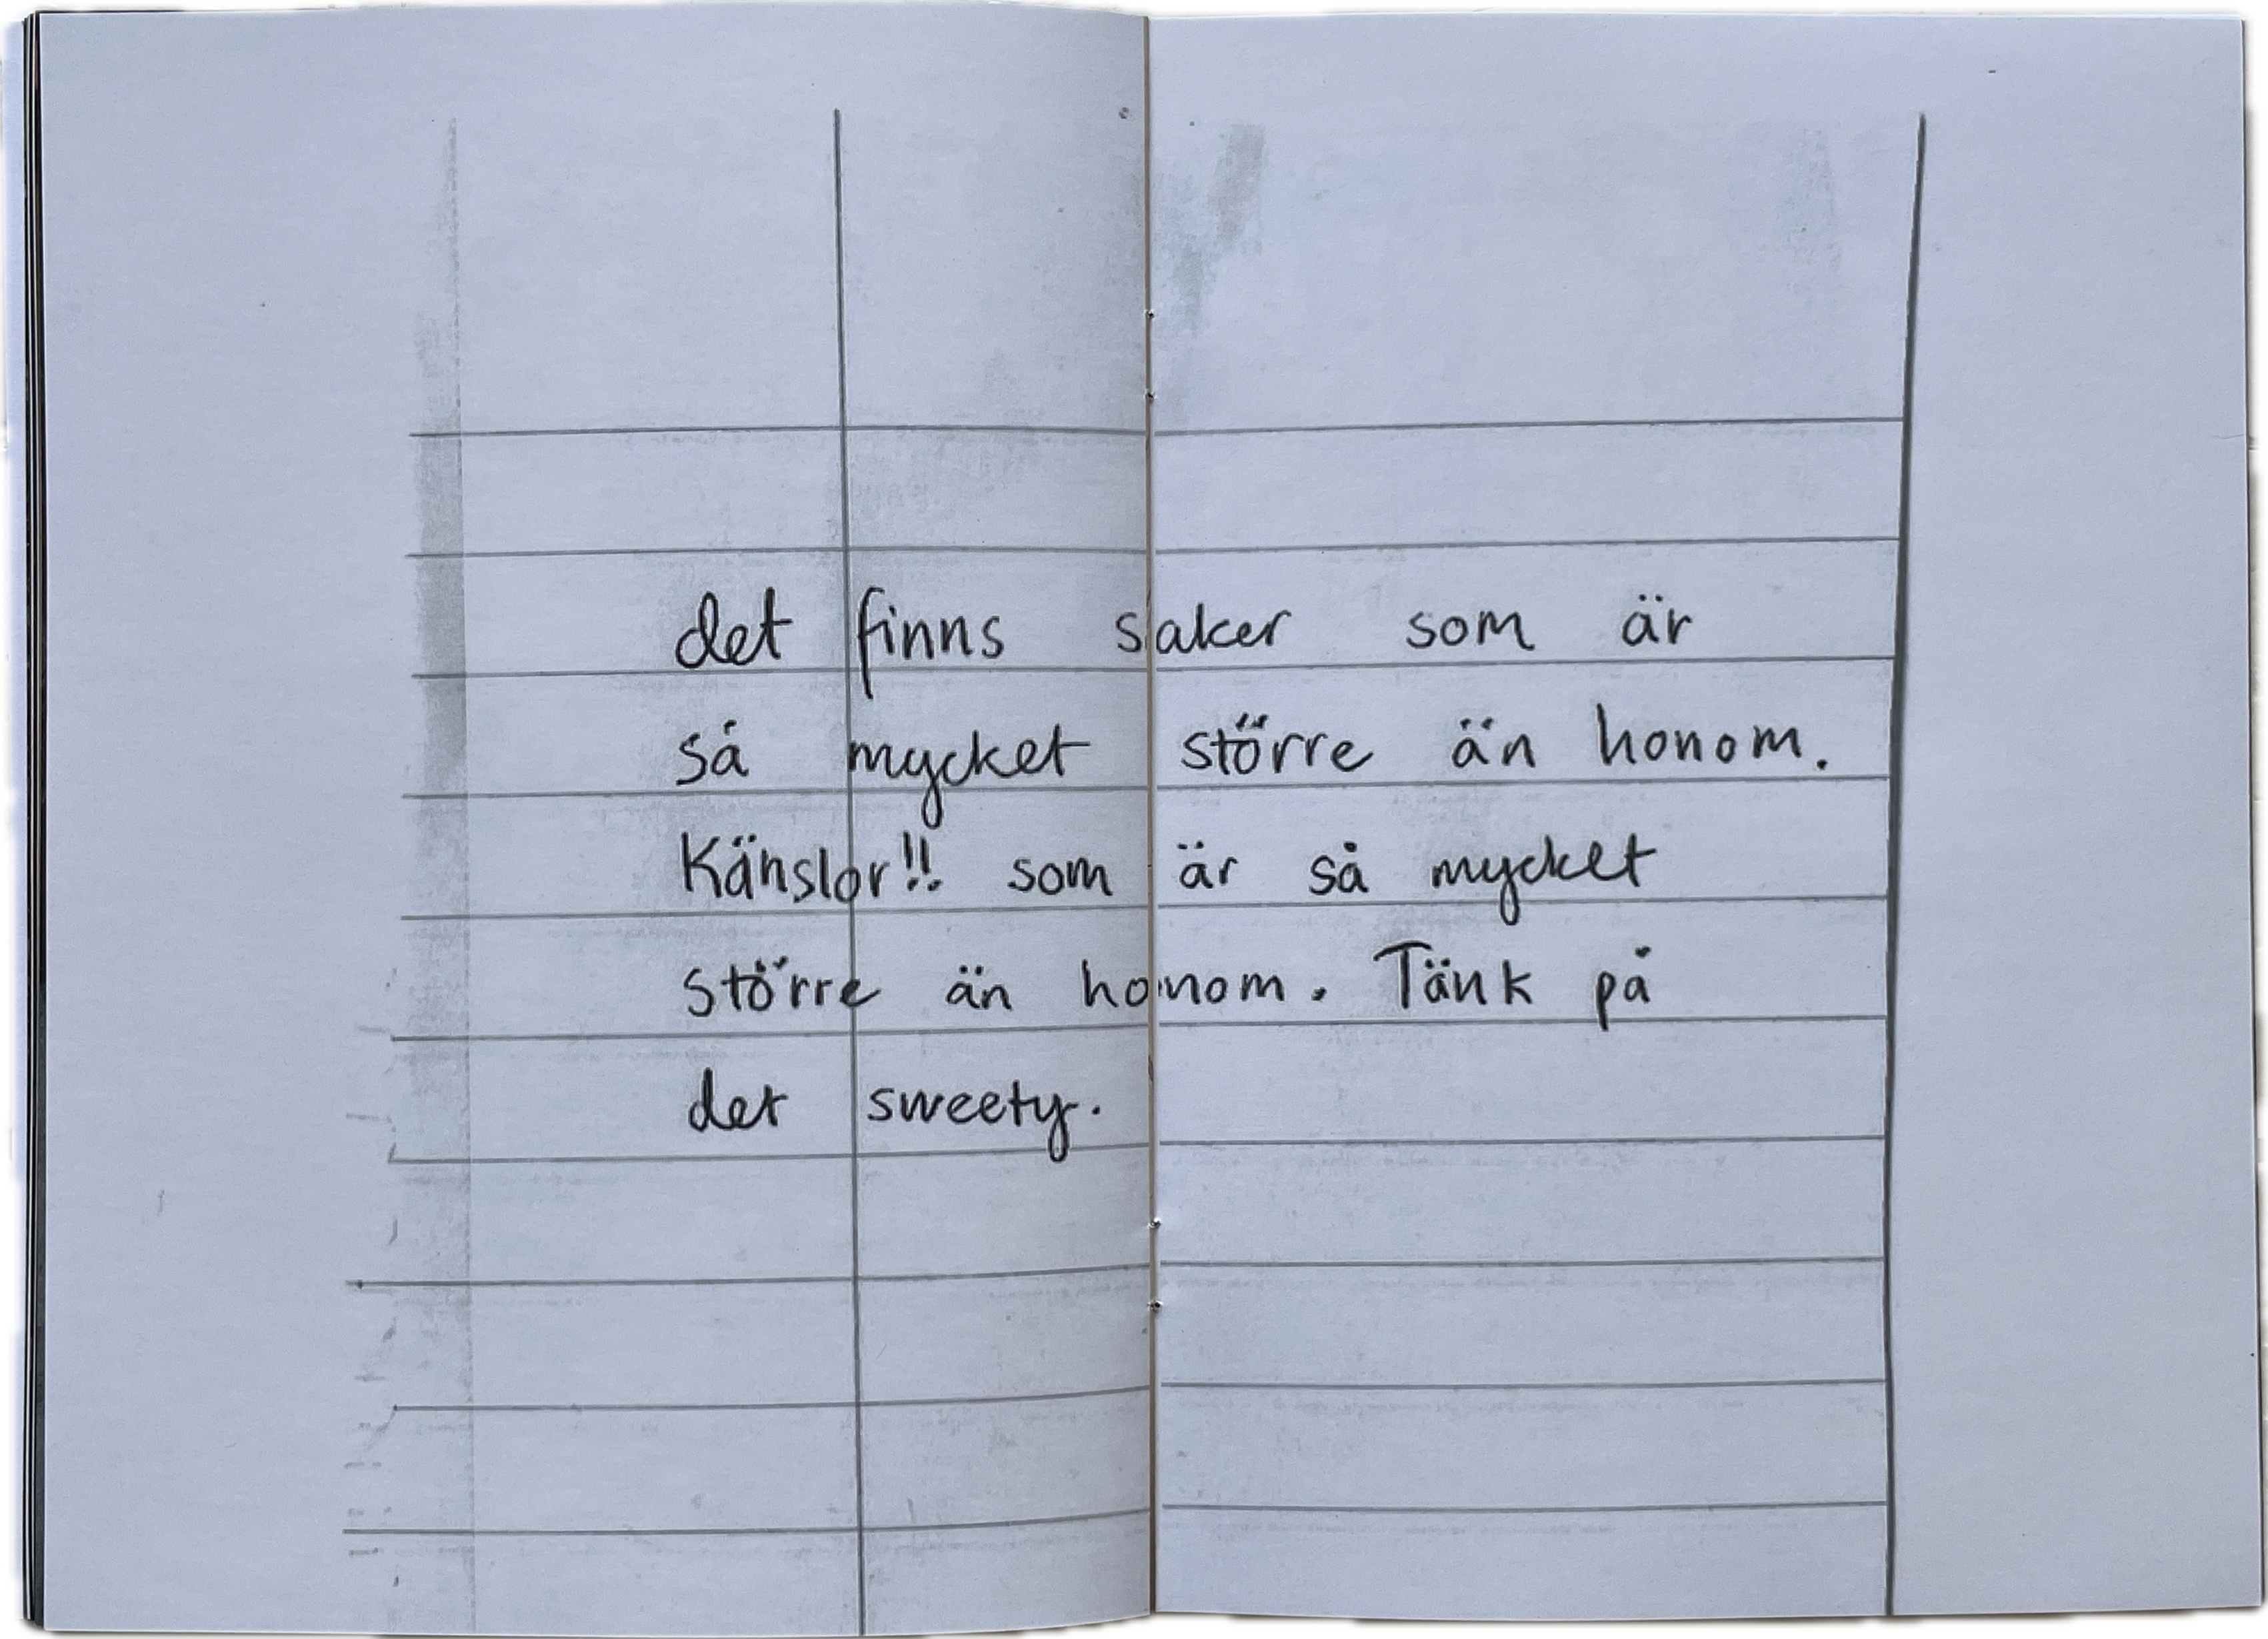 det finns saker som är
så mycket större än honom.
Känslor!! som är så mycket
större än honom. Tänk på
det sweety.